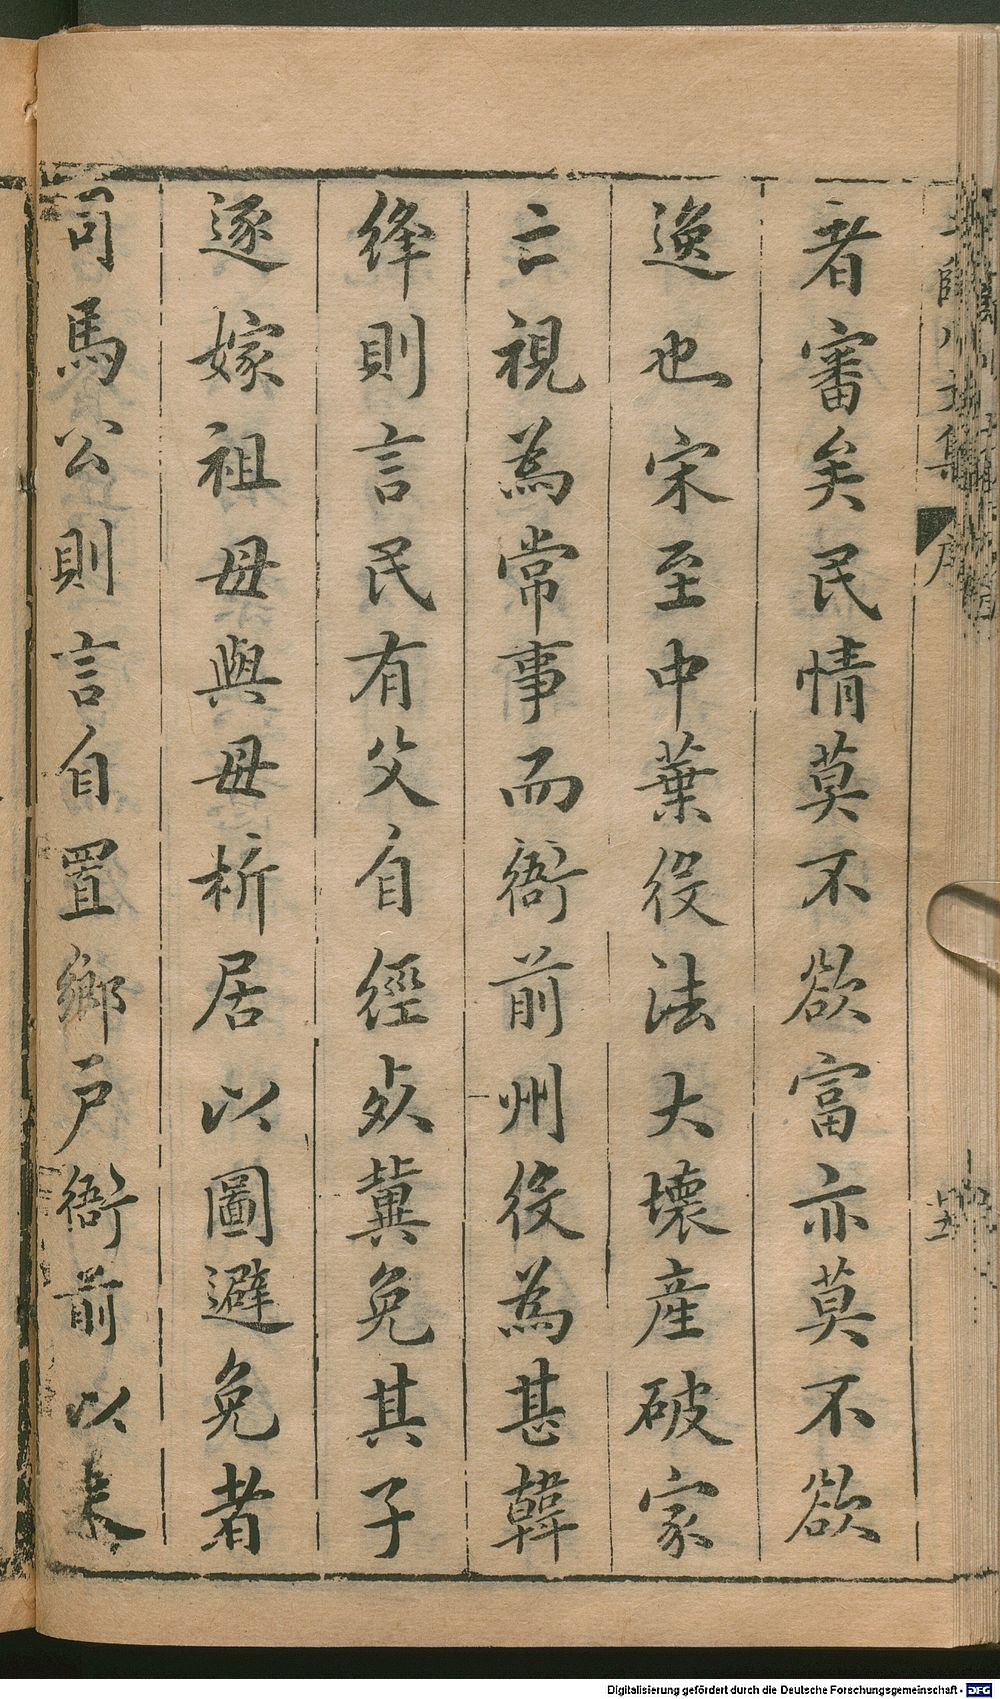 者審矣民情莫不欲富亦莫不欲
逸也宋至中葉役法大壞產破家
亡視為常事而衙前州役為甚韓
絳則言民有父自經死冀免其子
逐嫁祖母與母析居以圖避免者
司馬公則言自置鄉戶衙前以來
Digitalisierung gefördert durch die Deutsche Forschungsgemeinschaft - DFG